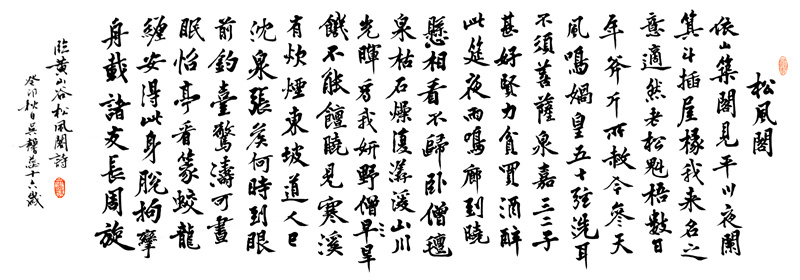 松風閣
依山集閣見平川夜闌
箕斗插屋椽我來名之
意適然老松魁梧數百
年斧斤所赦今參天
風鳴媧皇五十弦洗耳
不須菩薩泉嘉二三子
甚好賢力貧買酒醉
此筵夜雨鳴廊到曉
懸相看不歸臥僧氈
泉枯石燥復潺湲山川
光暉為我妍野僧早旱
飢不能饘曉見寒溪
有炊煙東坡道人已
沈泉張侯何時到眼
前釣臺驚濤可晝
眠怡亭看篆蛟龍
纏安得此身脫拘攣
舟載諸友長周旋
臨黃山谷松風閣詩
癸卯秋日吳十六歲